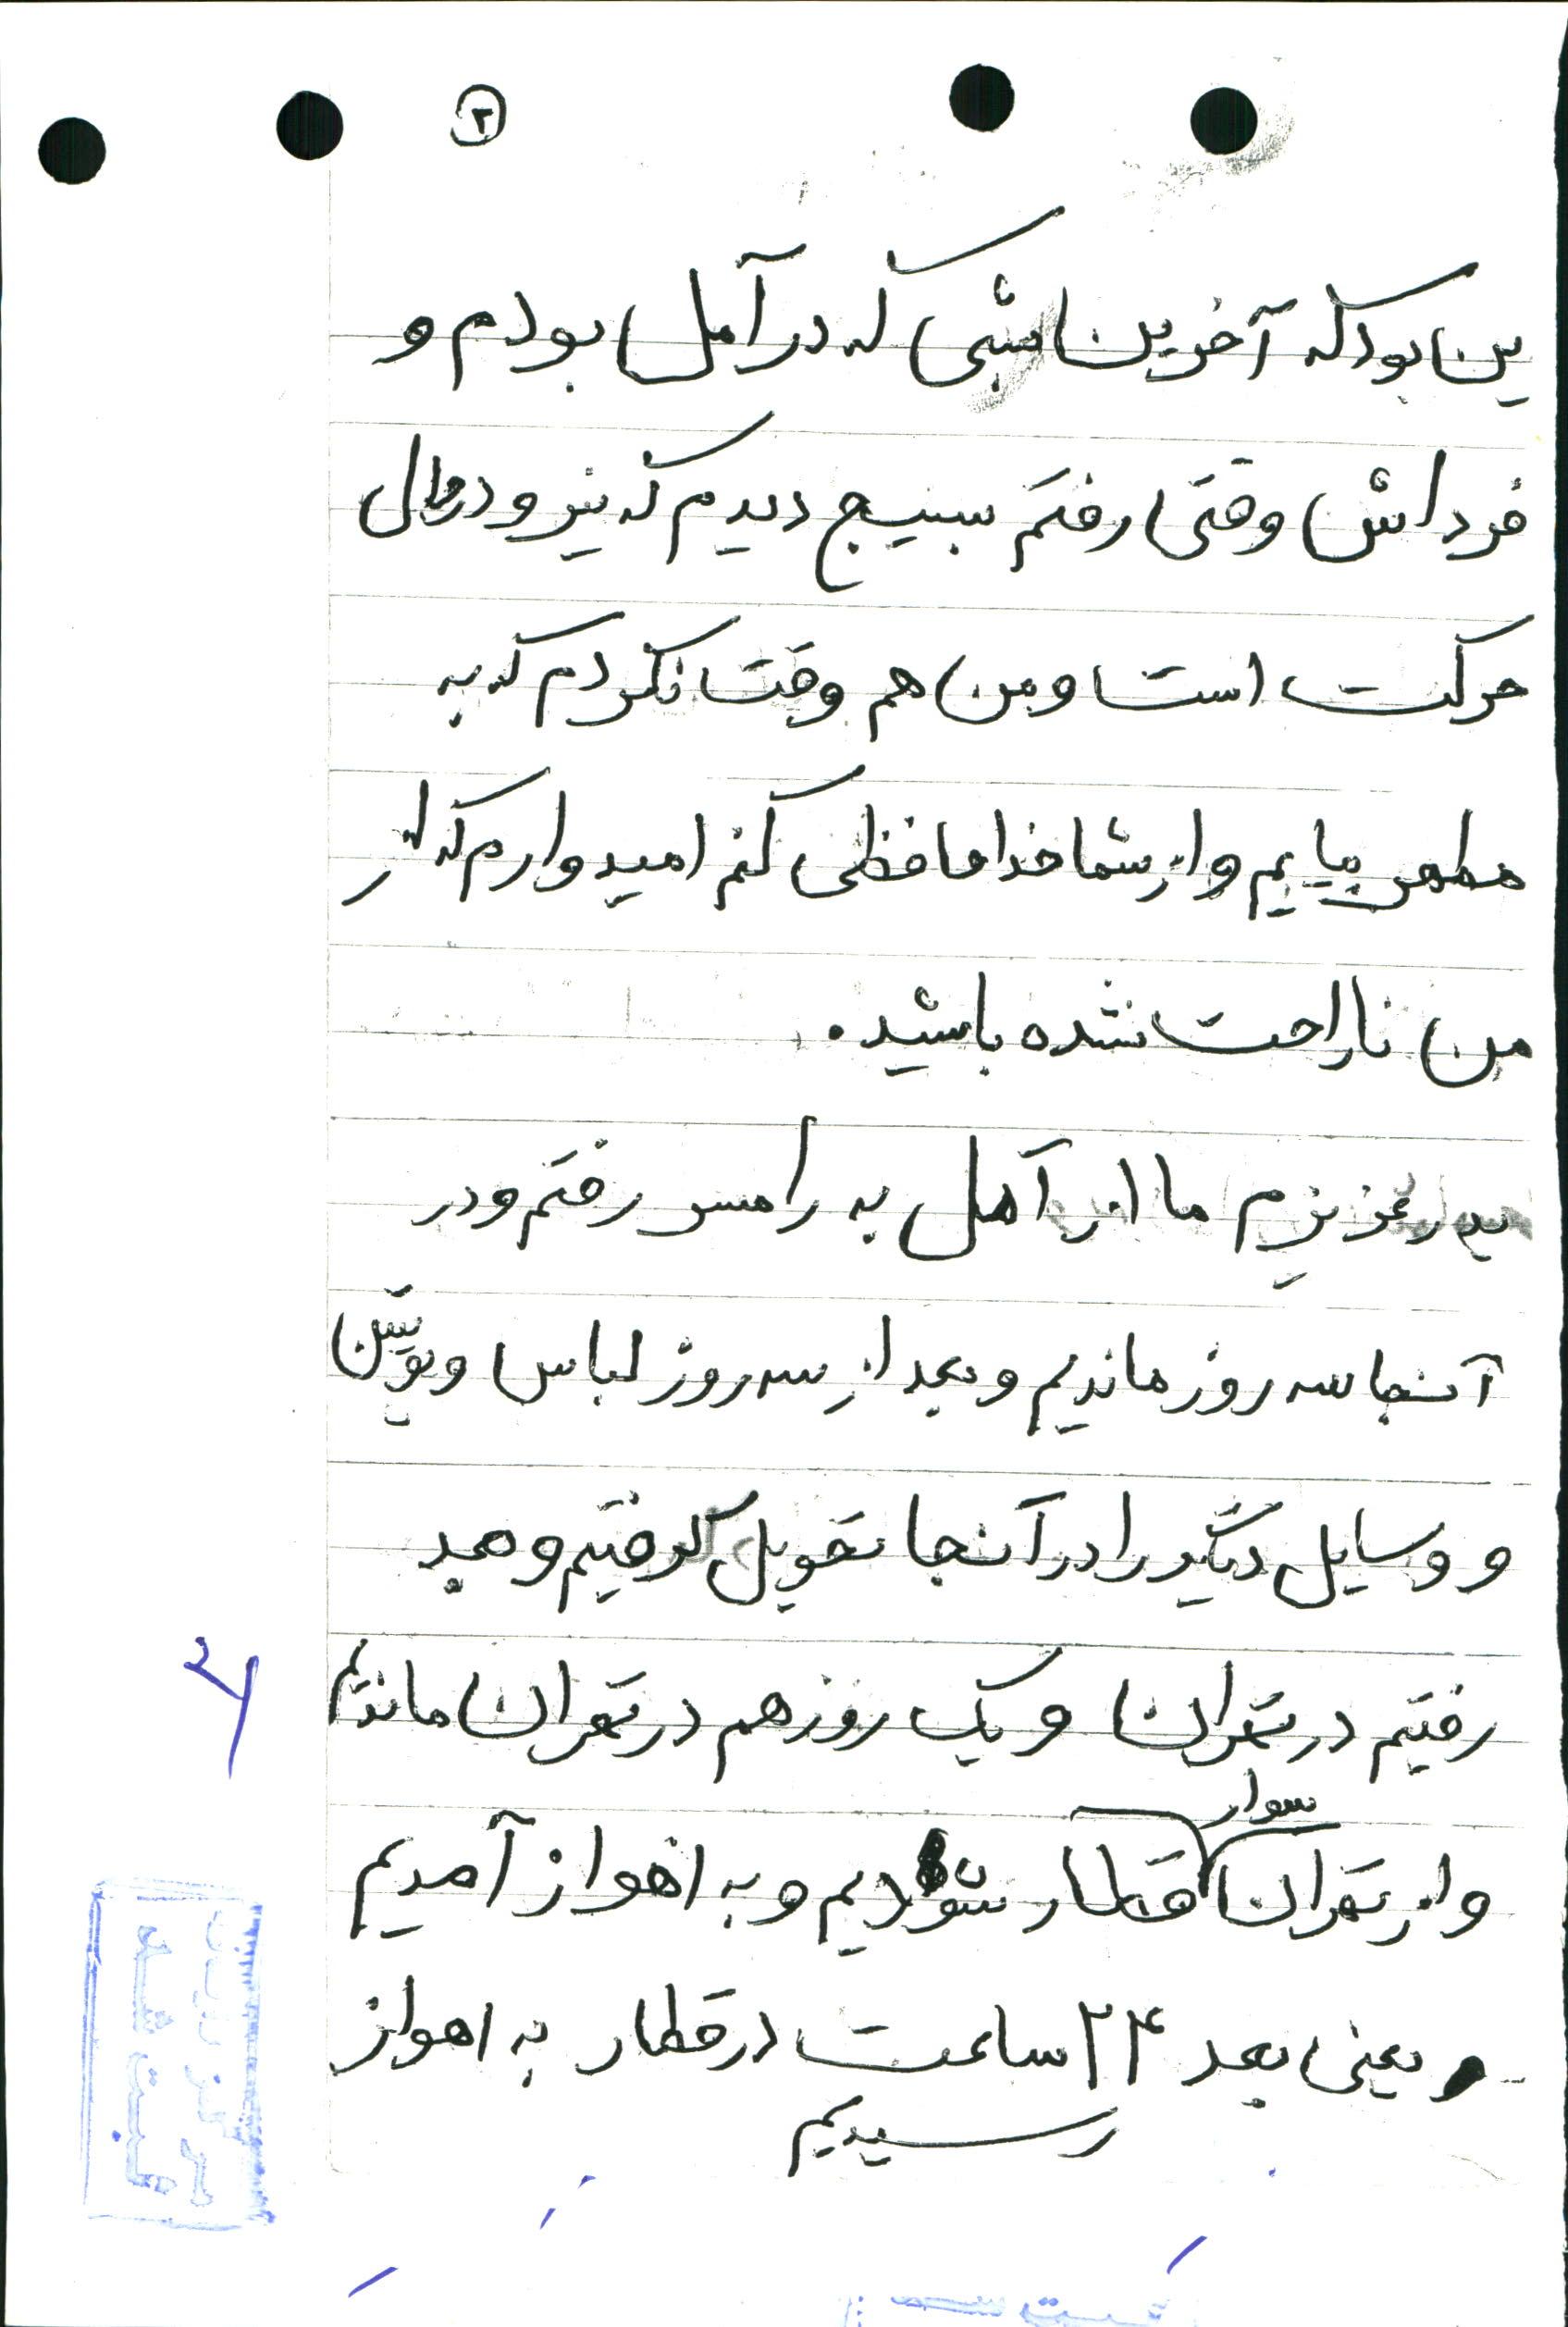 ۲
ین بود که آخرین شبی که در آمل بودم و
فرداش وقتی رفتم بسیج دیدم که نیرو در حال
حرکت است و من هم وقت نکردم که به
منزل بیایم و از شما خداحافظی کنم امیدوارم که از
من ناراحت نشده باشید.
پدر عزیزم ما از آمل به رامسر رفتم و در
آنجا سه روز ماندیم و بعد از سه روز لباس و پوتین
و وسایل دیگر را در آنجا تحویل گرفتیم و بعد
رفتیم در تهران و یک روز هم در تهران ماندیم
سوار
و از تهران قطار شدیم و به اهواز آمدیم
و یعنی بعد ۲۴ ساعت در قطار به اهواز
رسیدیم
ثبت شد